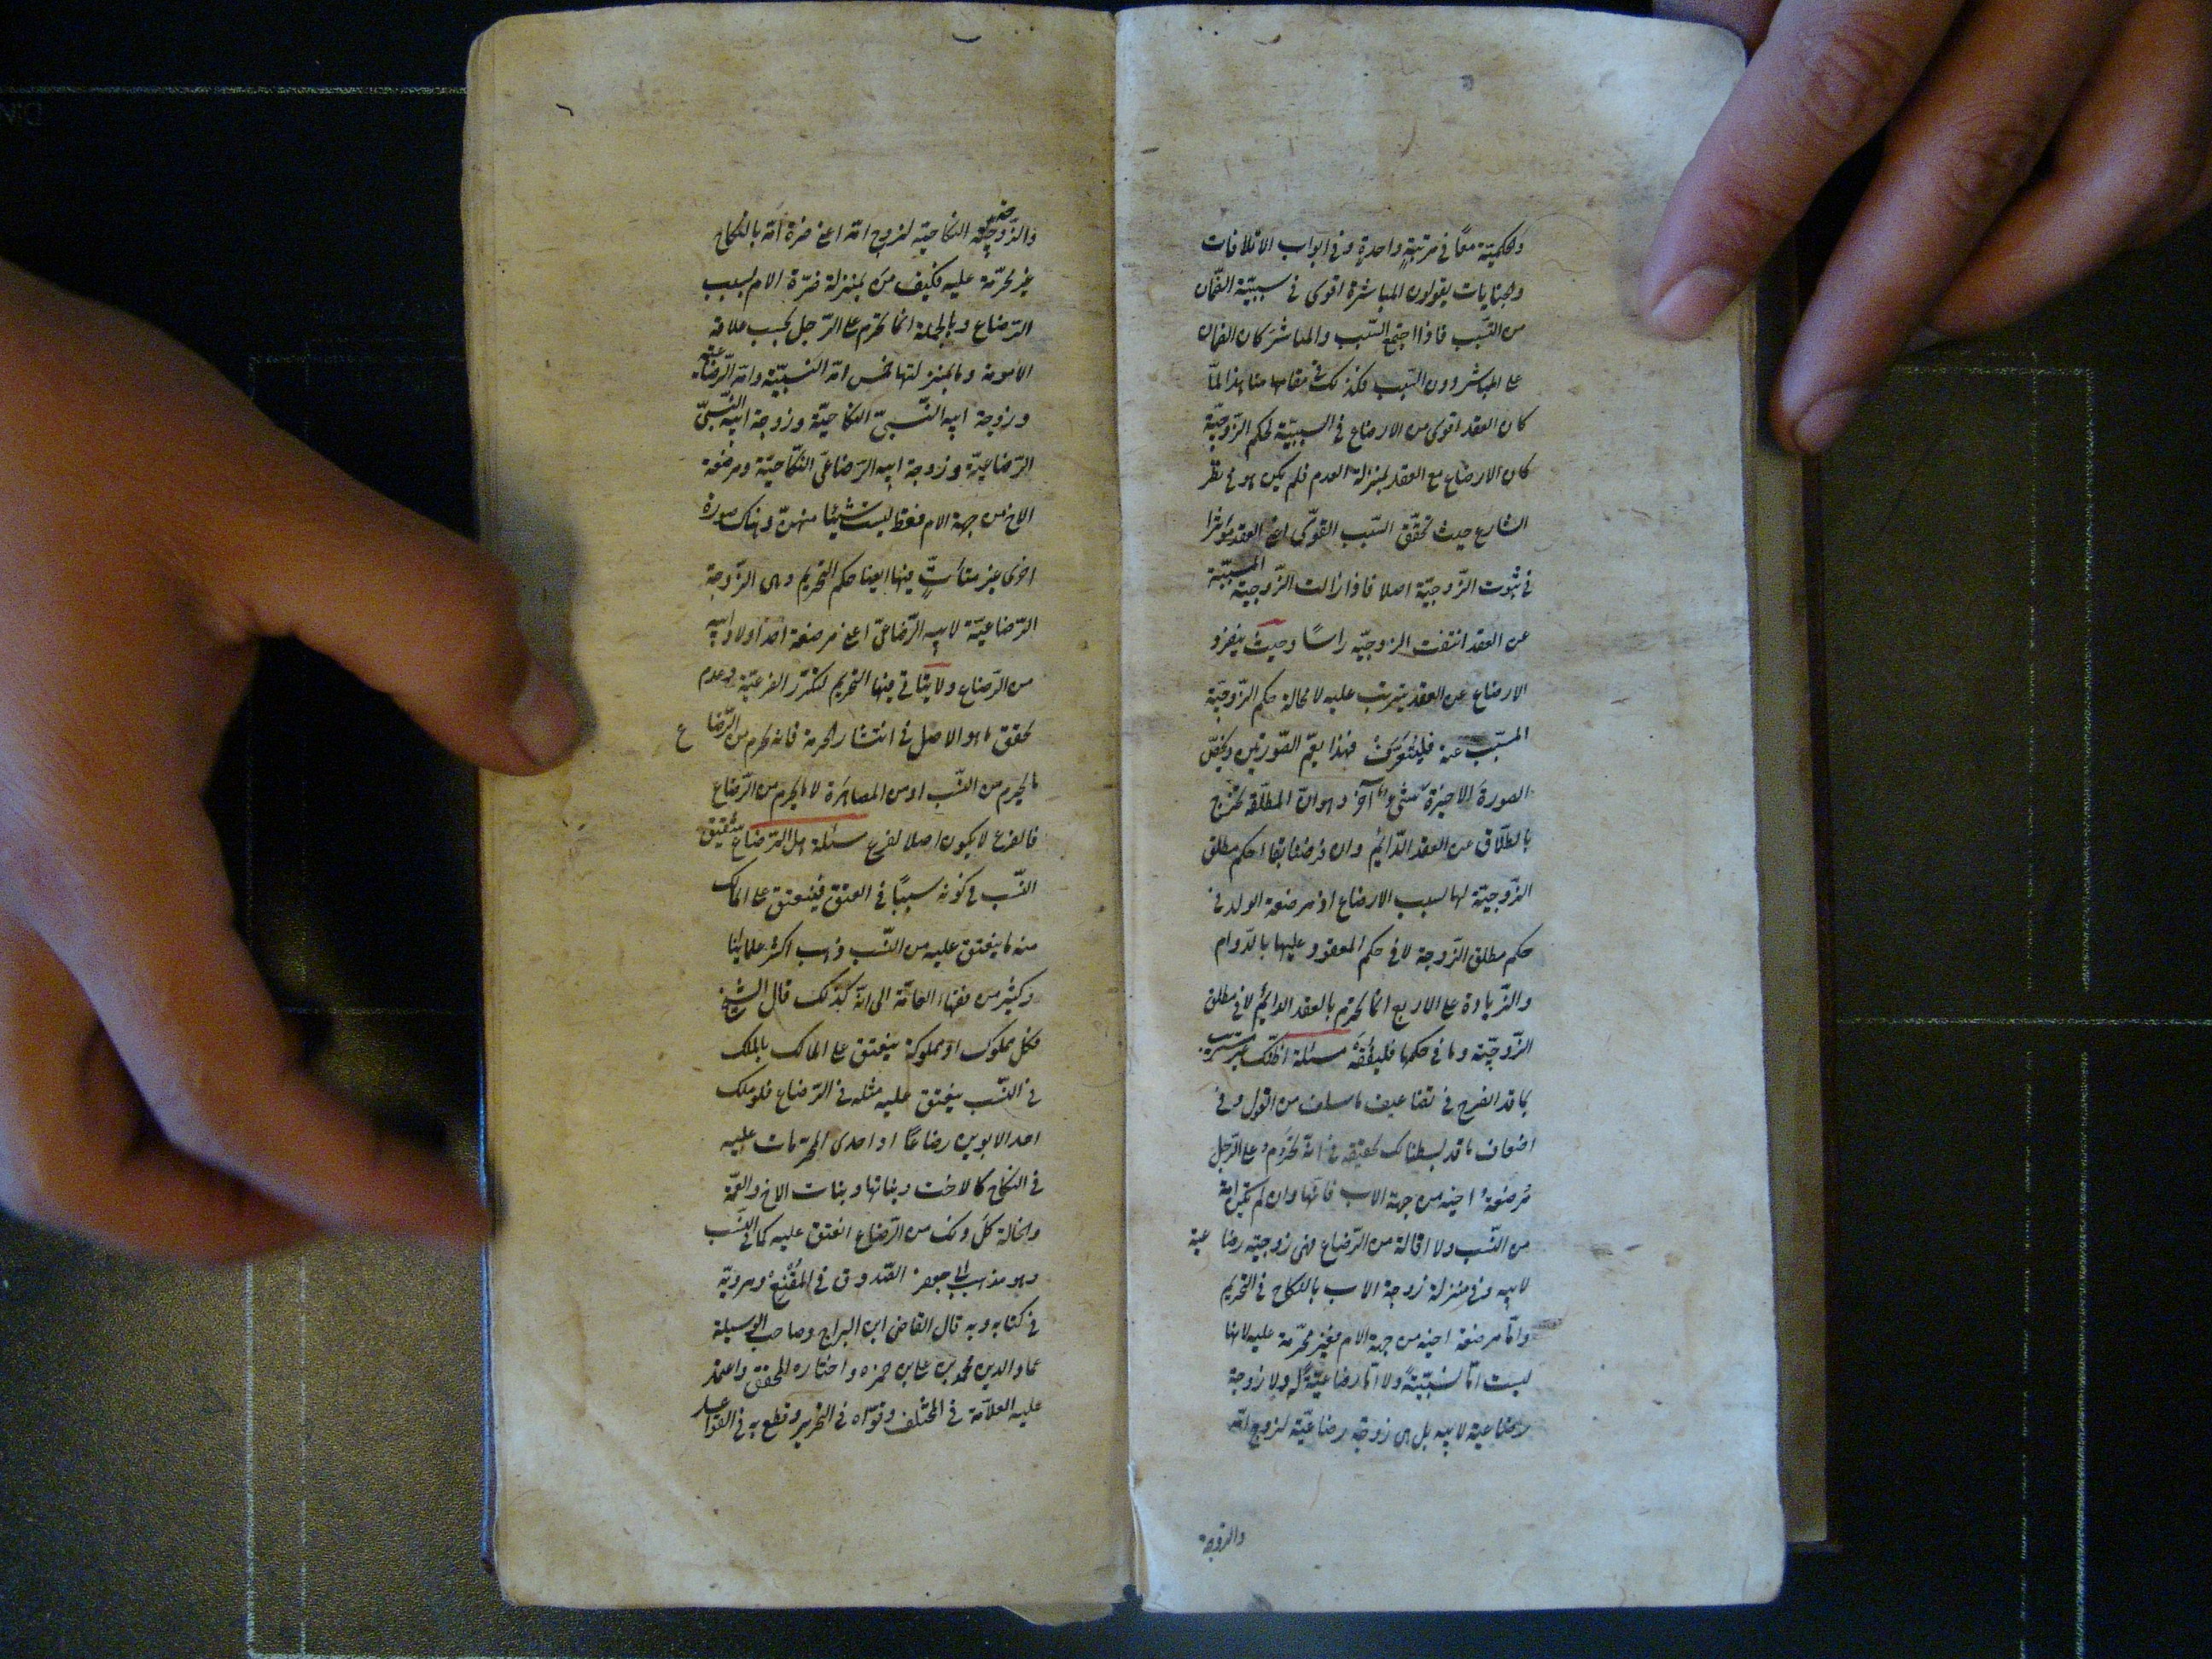 والحكمية معًا في مرتبةٍ واحدةٍ وفي ابواب الاتلافات
والجنايات يقولون المباشرة اقوى في سببيّة الضّمان
من التسّبب فاذا اجتمع السّبب والمباشر كان الضمان
على المباشر دون السّبب فكذلك في مقامنا هذا لمّا
كان العقد اقوى من الارضاع في السببيّة لحكم الزّوجيّة
كان الارضاع مع العقد بمنزلة العدم فلم يكن هو في نظر
الشارع حيث تحقّق السّبب القوىّ اعنى العقد مؤثرا
في ثبوت الزّوجيّة اصلا فاذا زالت الزّوجية المسببّة
عن العقد انتفت الزوجيّه راسًا وحيث ينفرد
الارضاع عن العقد يترتب عليه لا محالة حكم الزّوجيّة
المسبّب عنه فليتعرّف فهذا يعمّ الصّورتين ويخصّ
الصورة الاخيرة شئ آخر وهو انّ المطلّقه تخرج
بالطلّاق عن العقد الدّائم وان فرضنا بقاء حكم مطلق
الزّوجيّة لها بسبب الارضاع اذ مرضعة الولد في
حكم مطلق الزّوجة لا في حكم المعقود عليها بالدّوام
والزّيادة على الاربع انما تحرم بالعقد الدائم لا في مطلق
الزّوجيّة وما في حكمها فليفقه مسئلة اظنّك غير
بما قد انصرح في تضاعيف ما سلف من القول وفي
اضعاف ما قد بسطنا لك تحقيقه في انّه تحرم على الرّجل
مرضعة اخيه من جهة الاب فانّها وان لم تكن امّه
من النّسب ولا امّا له من الرّضاع فهى زوجيّه رضاعية
لابيه وفي منزلة زوجة الاب بالنكاح في التحريم
وامّا مرضعة اخيه من جهة الام فغير محرّمة عليه لانها
ليست امّا نسبيّةً ولا امّا رضاعيّةً له ولا زوجة
رضاعية لابيه بل هى زوجة رضاعيّة لزوج امّه
والزوجة
والزّوجة النكاحيّة لزوج امّه اعنى ضرة امّه بالنكاح
غير محرّمة عليه فكيف من بمنزلة ضرّة الام بسبب
الرّضاع وبالجملة انما تحرم على الرّجل بحسب علاقة
الامومة وما بمنزلتها خمس امّه النسبيّة وامّه الرّضاعيّه
وزوجة ابيه النّسبىّ النكاحيّة وزوجة ابيه النّسبىّ
الرّضاعيّة وزوجة ابيه الرّضاعىّ النّكاحيّة ومرضعة
الاخ من جهة الام فقط ليست شيئا منهنّ وهناك صورة
اخرى غير متأتّ فيها ايضا حكم التحريم وهى الزّوجة
الرّضاعيّة لابيه الرّضاعىّ اعنى مرضعة احد اولاد ابيه
من الرّضاع ولا يتأتى فيها التحريم لتكرّر الفرعيّة وعدم
تحقق ما هو الاصل في انتشار الحرمة فانه يحرم من الرّضاع
ما يحرم من النّسب او من المصاهرة لا ما يحرم من الرّضاع
فالفرع لا يكون اصلا لفرع مسئلة هل الرّضاع شقيق
النّسب في كونه سببًا في العتق فينعتق على المالك
منه ما ينعتق عليه من النّسب ذهب اكثر علمائنا
وكثير من فقهاء العامّة الى انّه كذلك قال الشيخ
فكل مملوك او مملوكة ينعتق على المالك بالملك
في النّسب ينعتق عليه مثله في الرّضاع فلو ملك
احد الابوين رضاعًا او احدى المحرّمات عليه
في النكاح كالاخت وبناتها وبنات الاخ والعمّة
والخالة كلّ ذلك من الرّضاع انعتق عليه كما في النّسب
وهو مذهب ابى جعفر الصّدوق في المقنع ومرويّه
في كتابه وبه قال القاضى ابن البراج وصاحب الوسيلة
عماد الدين محمد بن على بن حمزه واختاره المحقق واعتمد
عليه العلّامة في المختلف وقوّاه في التحرير وقطع به في القواعد